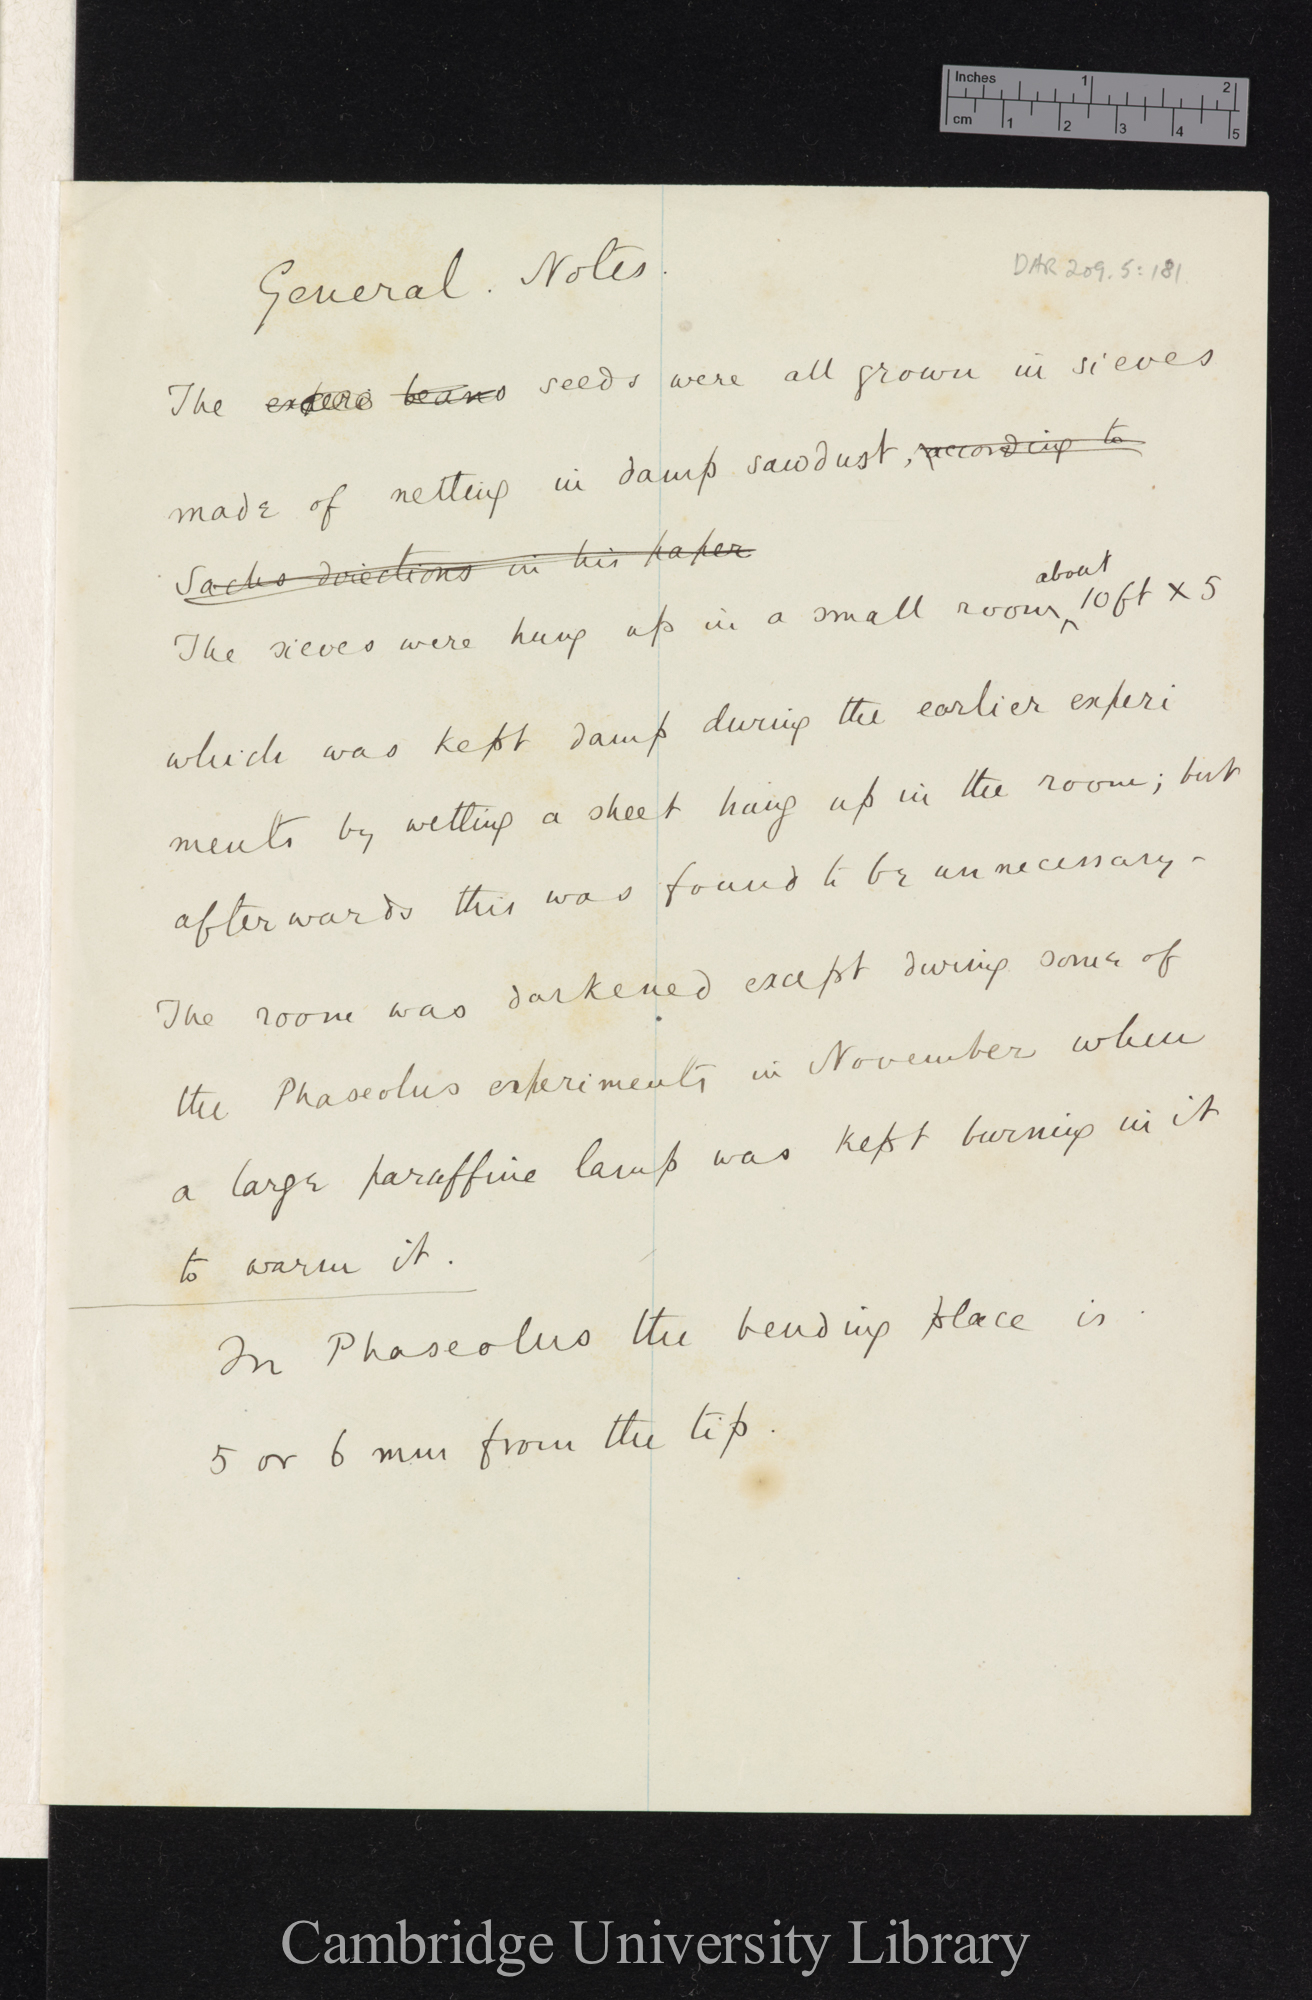 Inches 1 2
cm 1 2 3 4 5
General. Notes.
DAR 209.5:181
The experi beans seeds were all grown in sieves
made of netting in damp sawdust, according to
Sachs directions in his paper
about
The sieves were hung up in a small room 10ft x 5
which was kept damp during the earlier experi
ments by wetting a sheet hung up in the room; but
afterwards this was found to be unnecessary -
The room was darkened except during some of
the Phaseolus experiments in November when
a large paraffine lamp was kept burning in it
to warm it.
In Phaseolus the bending place is
5 or 6 mm from the tip.
Cambridge University Library